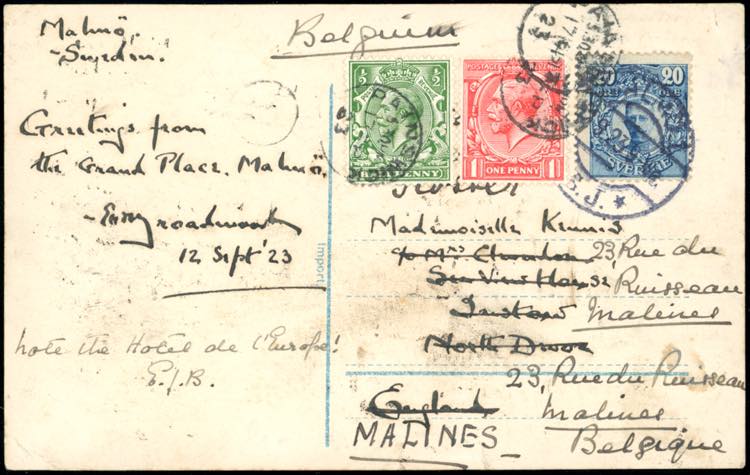 Malmö,
Sweden.
Belgium
Greetings from
the Grand Place, Malmö,
12 Sept '23
note the Hotel de l'Europe!
E.J.B.
Import
½ ½
PENNY
POSTAGE REVENUE
1 ONE PENNY 1
20 20
SVERIGE
Mademoiselle Kennis
c/o Mrs 23, Rue du
Sea View House Ruisseau
Instow Malines
North Devon
23, Rue du Ruisseau
England Malines
MALINES Belgique